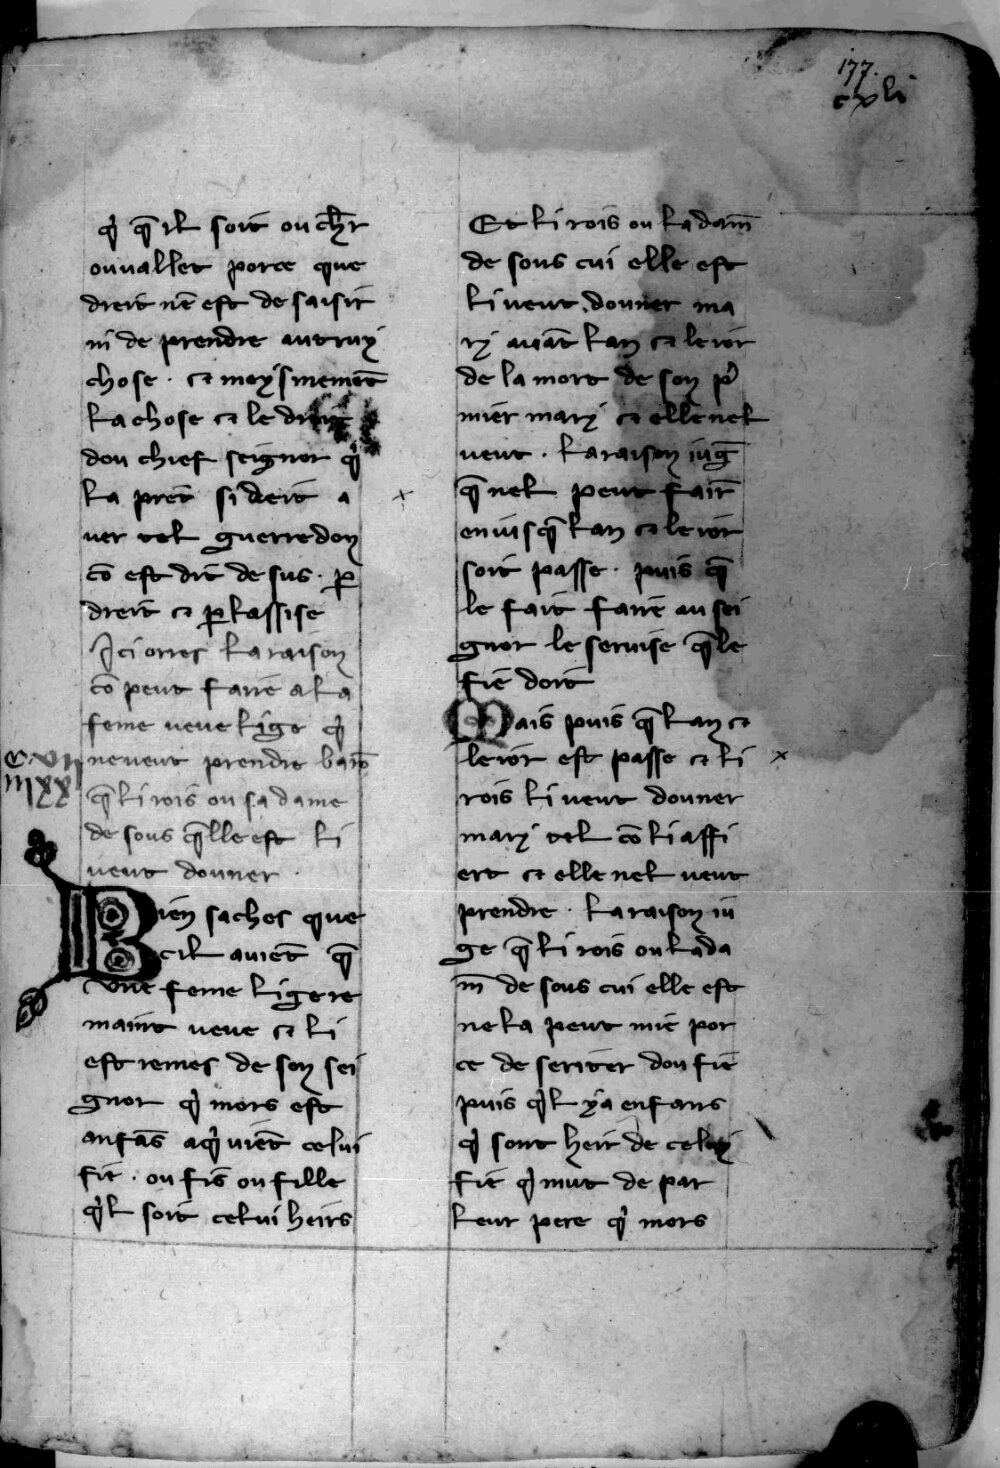 177.
cxli
q̾ q̄ il soit ou ch̅r
ou vallet por ce que
dreit nē est de saisir
ni de prendre autruy
chose · et meysmement
la chose et le droit
dou chief seignor q̾
la preē si deit a
ver tel guerredon
cō est dit desus · ꝑ
dreit et ꝑ lassise
Ici orres la raison
cō peut faire a la
feme veve lige q̾
ne veut prendre barō
q̄ li rois ou sa dame
de sous q̄lle est li
veut donner ·
Bien saches que
cil avient q̄
une feme lige re
maint veve et li
est remes de son sei
gnor q̾ mors est
anfās aq̾ vient celui
fie · ou fis ou fille
q̾l soit celui heirs
Et li rois ou la dam̄
de sous cui elle est
li veut donner ma
ry avāt lan et le ior
de la mort de son p̾
mier mary et elle nel
veut · la raison iuḡ
q̄ nel peut faire
en iusq̄ lan et le ior
soit passe · puis q̄
le fait faire au sei
gnor le servise q̄ le
fie doit
Mais puis q̄ lan et
le ior est passe et li
rois li veut donner
mary tel cō li affi
ert et elle nel veut
prendre · la raison iu
ge q̄ li rois ou la da
m̄ de sous cui elle est
ne la peut mie por
ce deseriter dou fie
puis q̾l y a enfans
q̾ sont heir de celuy
fie q̾ mut de par
leur pere q̾ mors